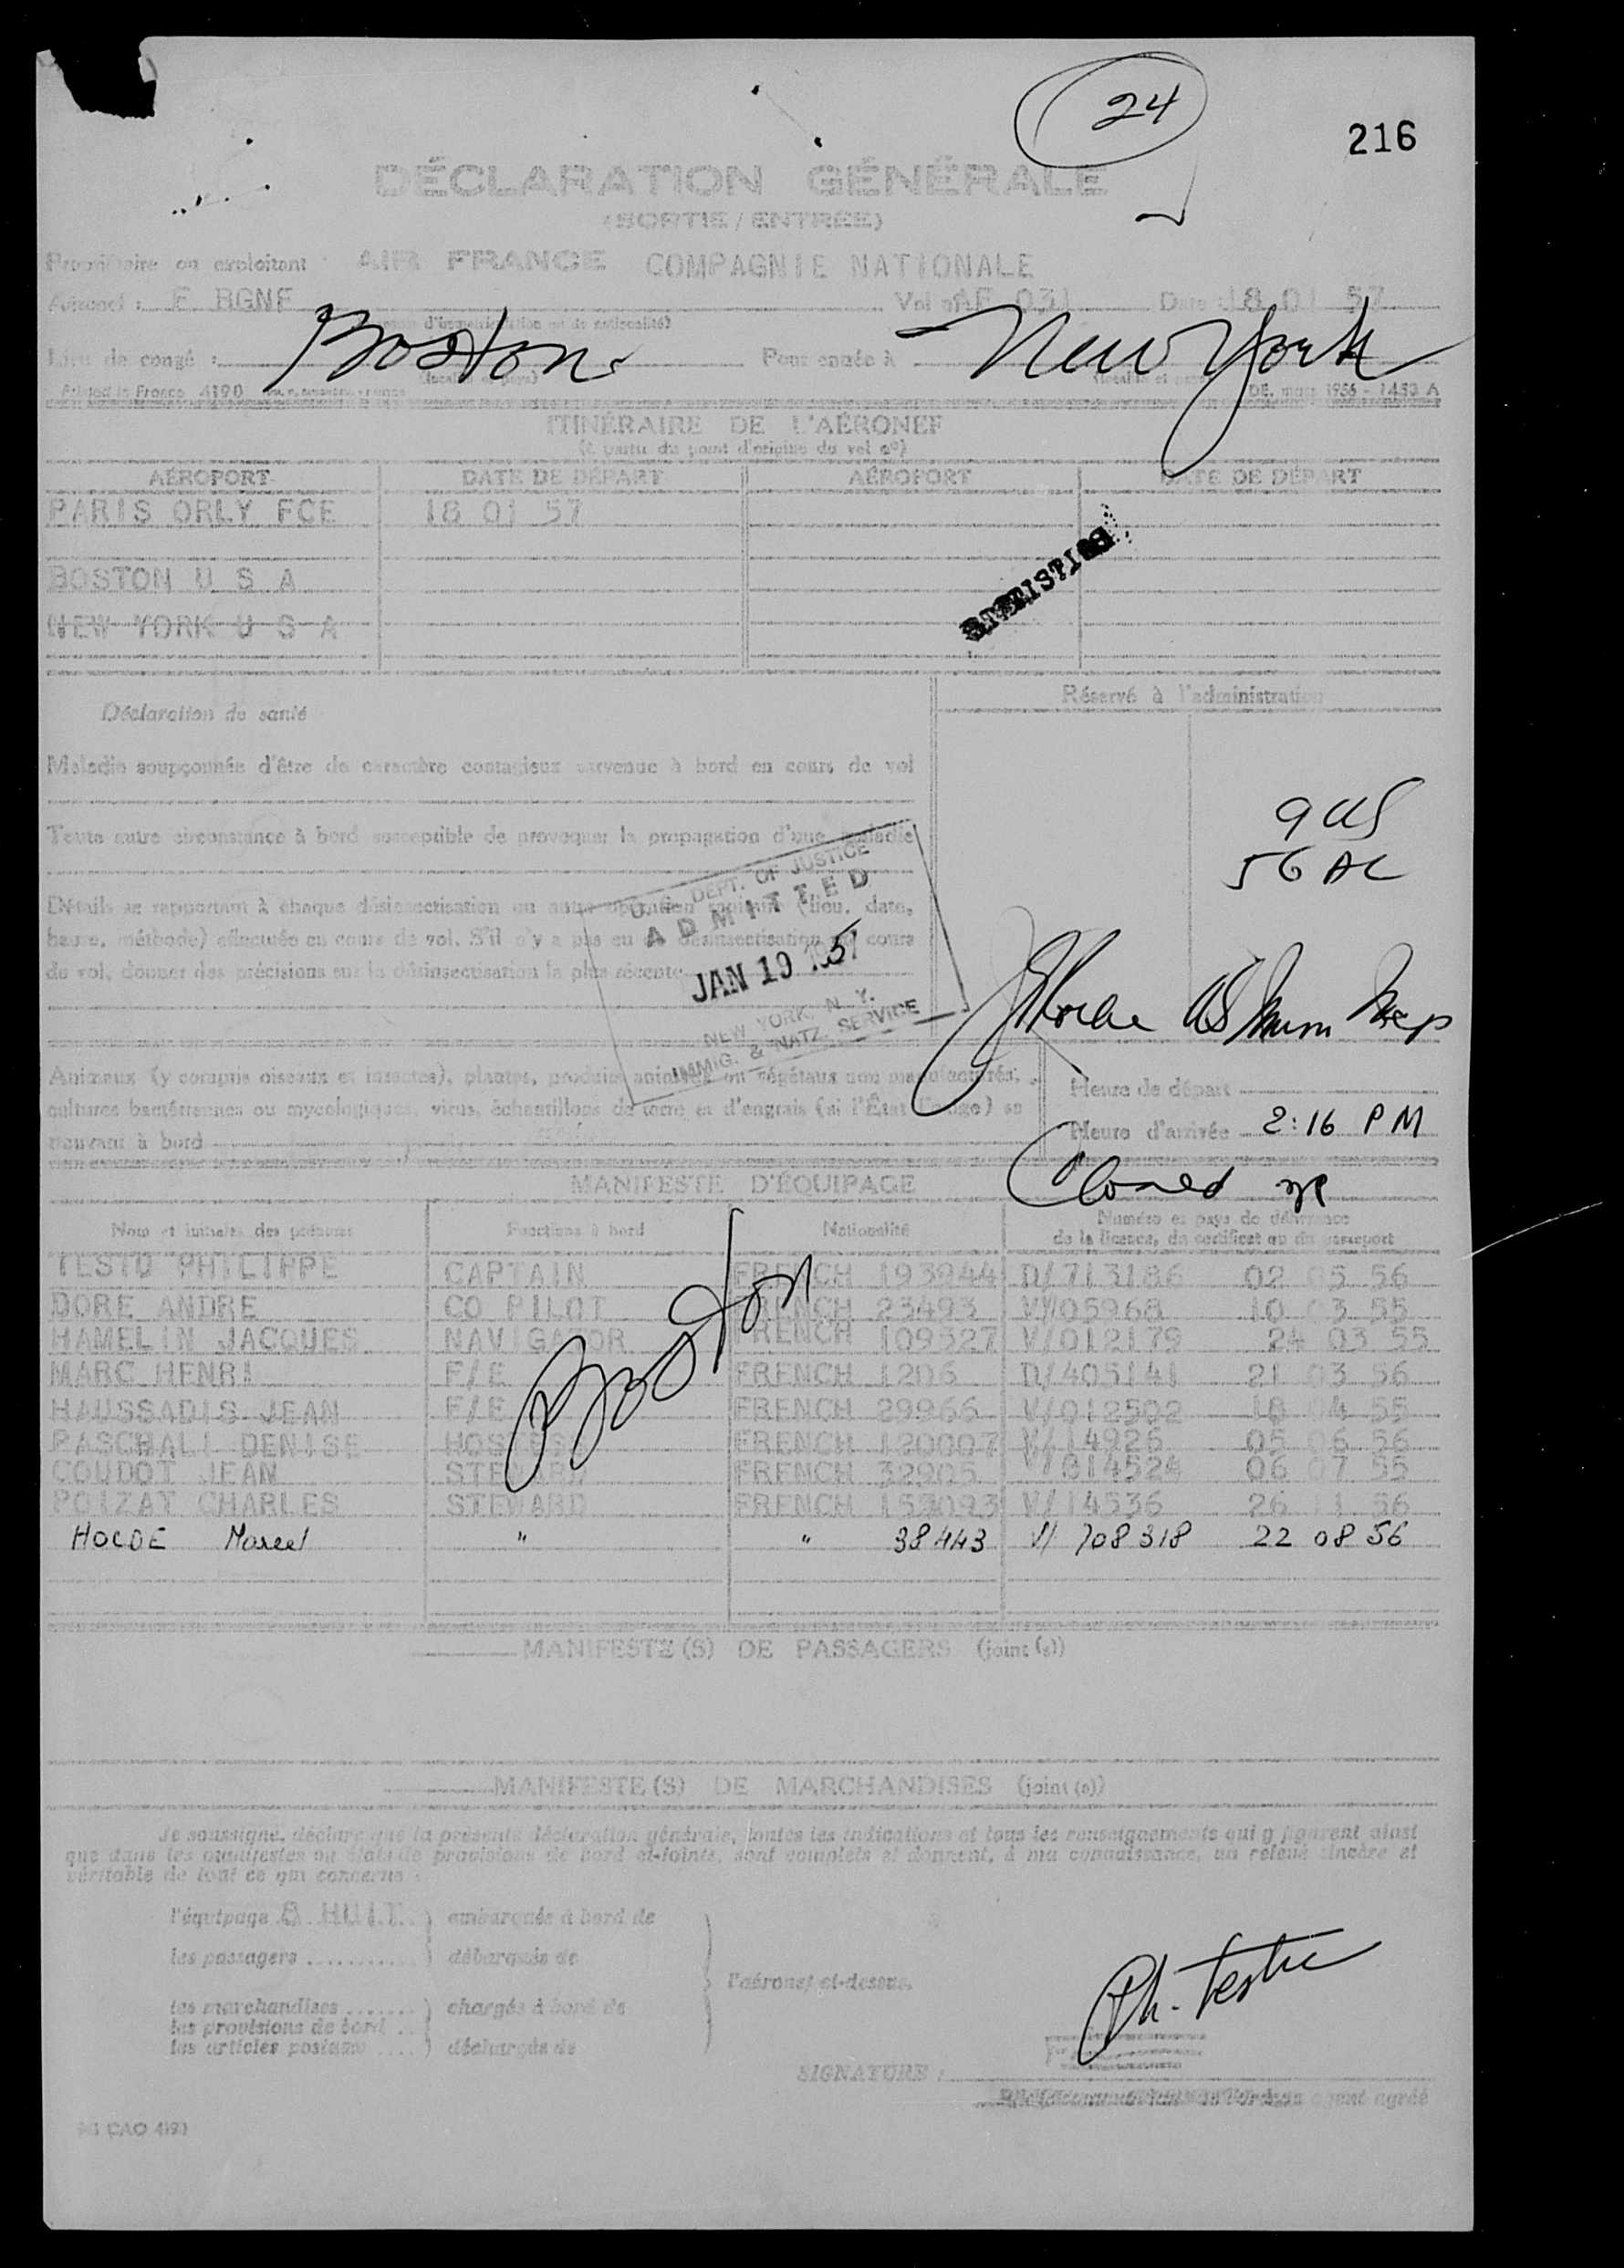 24
216
DÉCLARATION GÉNÉRALE
(SORTIE / ENTRÉE)
Propriétaire ou exploitant : AIR FRANCE COMPAGNIE NATIONALE
Aéronef : F BGNF Vol nº AF 031 Date : 18 01 57
Lieu de congé : Boston Pour entrée à New York
Printed in France 4190 DE. mars 1956 - 1450 A
ITINÉRAIRE DE L'AÉRONEF
(à partir du point d'origine du vol nº)
AÉROPORT DATE DE DÉPART AÉROPORT DATE DE DÉPART
PARIS ORLY FCE 18 01 57
BOSTON U S A
NEW YORK U S A
STATISTICS
Déclaration de santé Réservé à l'administration
Maladie soupçonnée d'être de caractère contagieux survenue à bord en cours de vol
Toute autre circonstance à bord susceptible de provoquer la propagation d'une maladie
9 US
56 AL
Détails se rapportant à chaque désinsectisation ou autre opération sanitaire (lieu, date,
heure, méthode) effectuée en cours de vol. S'il n'y a pas eu de désinsectisation en cours
de vol, donner des précisions sur la désinsectisation la plus récente
U. S. DEPT. OF JUSTICE
ADMITTED
JAN 19 1957
NEW YORK, N. Y.
IMMIG. & NATZ. SERVICE
Animaux (y compris oiseaux et insectes), plantes, produits animaux ou végétaux non manufacturés,
cultures bactériennes ou mycologiques, virus, échantillons de terre et d'engrais (si l'État l'exige) se
trouvant à bord
Heure de départ
Heure d'arrivée 2:16 PM
Closed
MANIFESTE D'ÉQUIPAGE
Nom et initiales des prénoms Fonctions à bord Nationalité Numéro et pays de délivrance
de la licence, du certificat ou du passeport
TESTU PHILIPPE CAPTAIN FRENCH 193944 D/713186 02 05 56
DORE ANDRE CO PILOT FRENCH 23493 V/05968 10 03 55
HAMELIN JACQUES NAVIGATOR FRENCH 109327 V/012179 24 03 55
MARC HENRI F/E FRENCH 1206 D/405141 21 03 56
HAUSSADIS JEAN F/E FRENCH 29966 V/012502 18 04 55
PASCHALI DENISE HOSTESS FRENCH 120007 V/14926 05 06 56
COUDOT JEAN STEWARD FRENCH 32905 V/014524 06 07 55
POIZAT CHARLES STEWARD FRENCH 153093 V/14536 26 11 56
HOLDE Marcel " " 38443 V/ 708318 22 08 56
Boston
MANIFESTE(S) DE PASSAGERS (joint(s))
MANIFESTE(S) DE MARCHANDISES (joint(s))
Je soussigné, déclare que la présente déclaration générale, toutes les indications et tous les renseignements qui y figurent ainsi
que dans les manifestes ou états de provisions de bord ci-joints, sont complets et donnent, à ma connaissance, un relevé sincère et
véritable de tout ce qui concerne :
l'équipage 8 HUIT embarqués à bord de
les passagers .......... débarqués de
l'aéronef ci-dessus.
les marchandises ....... chargés à bord de
les provisions de bord ..
les articles postaux .... déchargés de
Ph. Testu
SIGNATURE :
agent agréé